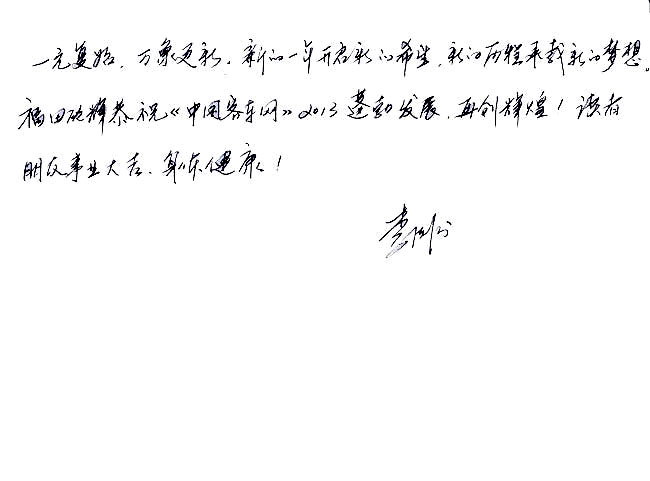 一元复始，万象更新。新的一年开启新的希望，新的历程承载新的梦想。
福田欧辉恭祝《中国客车网》2013蓬勃发展，再创辉煌！读者
朋友事业大吉、身体健康！